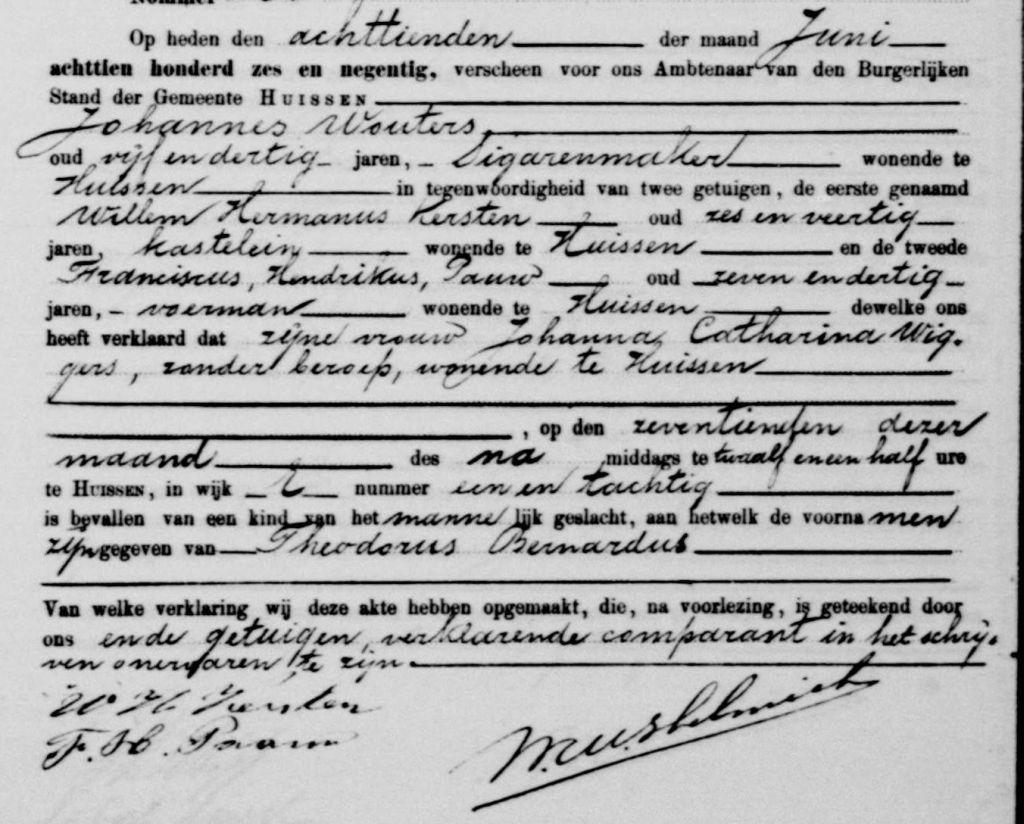 Op heden den achttienden der maand Juni
achttien honderd zes en negentig, verscheen voor ons Ambtenaar van den Burgerlijken
Stand der Gemeente HUISSEN
Johannes Wouters,
oud vijf en dertig jaren, Sigarenmaker wonende te
Huissen in tegenwoordigheid van twee getuigen, de eerste genaamd
Willem Hermanus Kersten oud zes en veertig
jaren, kastelein wonende te Huissen en de tweede
Franciscus, Hendrikus, Pauw oud zeven en dertig
jaren, voerman wonende te Huissen dewelke ons
heeft verklaard dat zijne vrouw Johanna Catharina Wig-
gers, zonder beroep, wonende te Huissen
, op den zeventienden dezer
maand des na middags te twaalf en een half ure
te HUISSEN, in wijk nummer een en tachtig
is bevallen van een kind van het manne lijk geslacht, aan hetwelk de voorna men
zijn gegeven van Theodorus Bernardus
Van welke verklaring wij deze akte hebben opgemaakt, die, na voorlezing, is geteekend door
ons en de getuigen, verklarende comparant in het schrij-
ven onervaren te zijn.
W. H. Kersten
F. H. Pauw